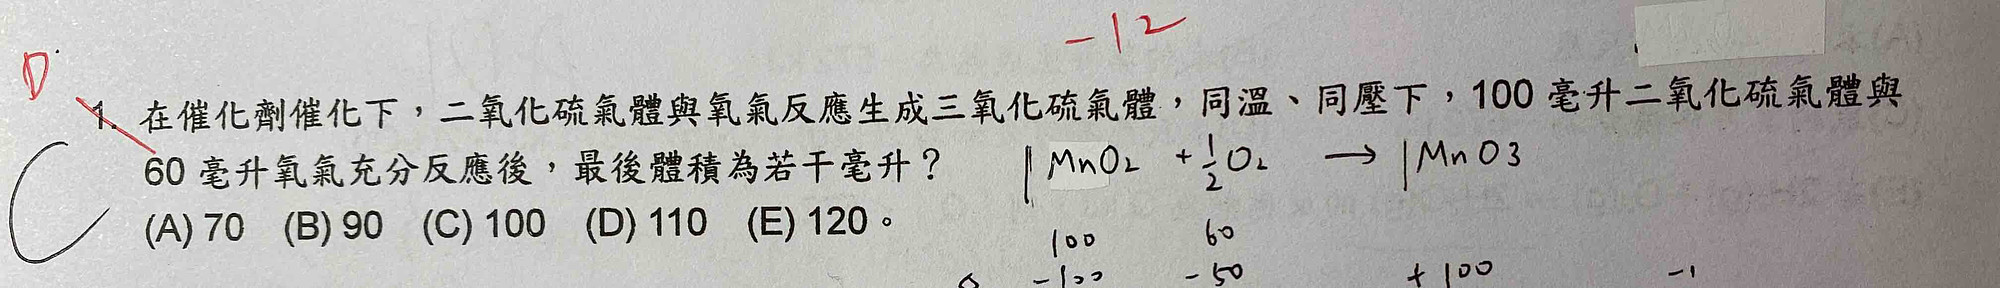 -12
D
1. 在催化劑催化下，二氧化硫氣體與氧氣反應生成三氧化硫氣體，同溫、同壓下，100 毫升二氧化硫氣體與
60 毫升氧氣充分反應後，最後體積為若干毫升？ 1 MnO2 + 1/2 O2 → 1 MnO3
C
(A) 70 (B) 90 (C) 100 (D) 110 (E) 120。
100 60
-100 -50 +100 -1